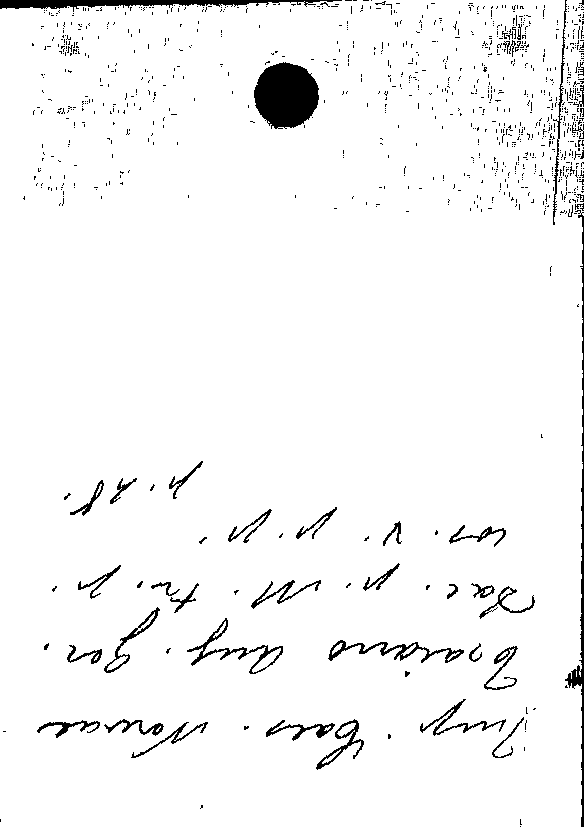 Imp. Caes. Nervae
Traiano Aug. Ger.
Dac. p. M. tr. p.
cos. V. p. p.
p. 28.